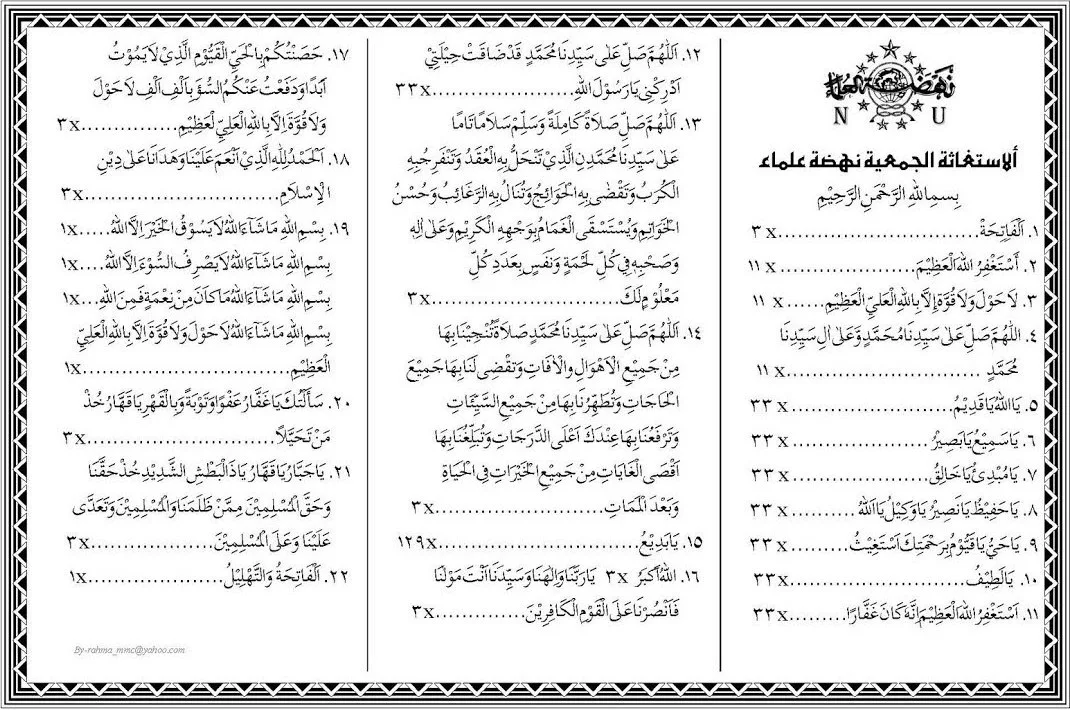 نهضة العلماء
N U
ألاستغاثة الجمعية نهضة علماء
بِسْمِ اللهِ الرَّحْمَنِ الرَّحِيْمِ
١. اَلْفَاتِحَةْ.............................٣ x
٢. أَسْتَغْفِرُ اللهَ الْعَظِيْمَ.....................١١ x
٣. لَاحَوْلَ وَلَاقُوَّةَ إِلَّا بِاللهِ الْعَلِيِّ الْعَظِيْمِ......١١ x
٤. اَللّٰهُمَّ صَلِّ عَلٰى سَيِّدِنَا مُحَمَّدٍ وَّعَلٰى اٰلِ سَيِّدِنَا
مُحَمَّدٍ ............................١١ x
٥. يَا اَللهُ يَا قَدِيْمُ.......................٣٣ x
٦. يَا سَمِيْعُ يَا بَصِيْرُ ....................٣٣ x
٧. يَا مُبْدِئُ يَا خَالِقُ....................٣٣ x
٨. يَا حَفِيْظُ يَا نَصِيْرُ يَا وَكِيْلُ يَا اَللهُ ..........٣٣ x
٩. يَا حَيُّ يَا قَيُّوْمُ بِرَحْمَتِكَ اَسْتَغِيْثُ........٣٣ x
١٠. يَا لَطِيْفُ.........................٣٣x
١١. اَسْتَغْفِرُ اللهَ الْعَظِيْمَ اِنَّهُ كَانَ غَفَّارًا........٣٣x
١٢. اَللّٰهُمَّ صَلِّ عَلٰى سَيِّدِنَا مُحَمَّدٍ قَدْ ضَاقَتْ حِيْلَتِيْ
اَدْرِكْنِيْ يَا رَسُوْلَ اللهِ....................٣٣x
١٣. اَللّٰهُمَّ صَلِّ صَلَاةً كَامِلَةً وَسَلِّمْ سَلَامًا تَامًا
عَلٰى سَيِّدِنَا مُحَمَّدِنِ الَّذِيْ تَنْحَلُّ بِهِ الْعُقَدُ وَتَنْفَرِجُ بِهِ
الْكُرَبُ وَتُقْضٰى بِهِ الْحَوَائِجُ وَتُنَالُ بِهِ الرَّغَائِبُ وَحُسْنُ
الْخَوَاتِمِ وَيُسْتَسْقَى الْغَمَامُ بِوَجْهِهِ الْكَرِيْمِ وَعَلٰى اٰلِهِ
وَصَحْبِهِ فِي كُلِّ لَحْمَةٍ وَنَفَسٍ بِعَدَدِ كُلِّ
مَعْلُوْمٍ لَكَ.............................٣x
١٤. اَللّٰهُمَّ صَلِّ عَلٰى سَيِّدِنَا مُحَمَّدٍ صَلَاةً تُنْجِيْنَا بِهَا
مِنْ جَمِيْعِ الْاَهْوَالِ وَالْاٰفَاتِ وَتَقْضِى لَنَا بِهَا جَمِيْعَ
الْحَاجَاتِ وَتُطَهِّرُنَا بِهَا مِنْ جَمِيْعِ السَّيِّئَاتِ
وَتَرْفَعُنَا بِهَا عِنْدَكَ اَعْلَى الدَّرَجَاتِ وَتُبَلِّغُنَا بِهَا
اَقْصَى الْغَايَاتِ مِنْ جَمِيْعِ الْخَيْرَاتِ فِى الْحَيَاةِ
وَبَعْدَ الْمَمَاتِ..........................٣x
١٥. يَا بَدِيْعُ.............................١٢٩x
١٦. اَللهُ اَكْبَرُ ٣x يَا رَبَّنَا وَاِلٰهَنَا وَسَيِّدَنَا اَنْتَ مَوْلٰنَا
فَانْصُرْنَا عَلَى الْقَوْمِ الْكَافِرِيْنَ.............٣x
١٧. حَصَنْتُكُمْ بِالْحَيِّ الْقَيُّوْمِ الَّذِيْ لَا يَمُوْتُ
اَبَدًا وَدَفَعْتُ عَنْكُمُ السُّوْءَ بِاَلْفِ اَلْفِ لَا حَوْلَ
وَلَا قُوَّةَ اِلَّا بِاللهِ الْعَلِيِّ الْعَظِيْمِ...............٣x
١٨. اَلْحَمْدُ لِلّٰهِ الَّذِيْ اَنْعَمَ عَلَيْنَا وَهَدَانَا عَلٰى دِيْنِ
الْاِسْلَامِ.............................٣x
١٩. بِسْمِ اللهِ مَا شَاءَ اللهُ لَا يَسُوْقُ الْخَيْرَ اِلَّا اللهُ.....١x
بِسْمِ اللهِ مَا شَاءَ اللهُ لَا يَصْرِفُ السُّوْءَ اِلَّا اللهُ....١x
بِسْمِ اللهِ مَا شَاءَ اللهُ مَا كَانَ مِنْ نِعْمَةٍ فَمِنَ اللهِ...١x
بِسْمِ اللهِ مَا شَاءَ اللهُ لَا حَوْلَ وَلَا قُوَّةَ اِلَّا بِاللهِ الْعَلِيِّ
الْعَظِيْمِ................................١x
٢٠. سَأَلْتُكَ يَا غَفَّارُ عَفْوًا وَتَوْبَةً وَّبِالْقَهْرِ يَا قَهَّارُ خُذْ
مَنْ تَحَيَّلَا............................٣x
٢١. يَا جَبَّارُ يَا قَهَّارُ يَا ذَا الْبَطْشِ الشَّدِيْدِ خُذْ حَقَّنَا
وَحَقَّ الْمُسْلِمِيْنَ مِمَّنْ ظَلَمَنَا وَالْمُسْلِمِيْنَ وَتَعَدَّى
عَلَيْنَا وَعَلَى الْمُسْلِمِيْنَ....................٣x
٢٢. اَلْفَاتِحَةُ وَالتَّهْلِيْلُ.......................١x
By-rahma_mmc@yahoo.com